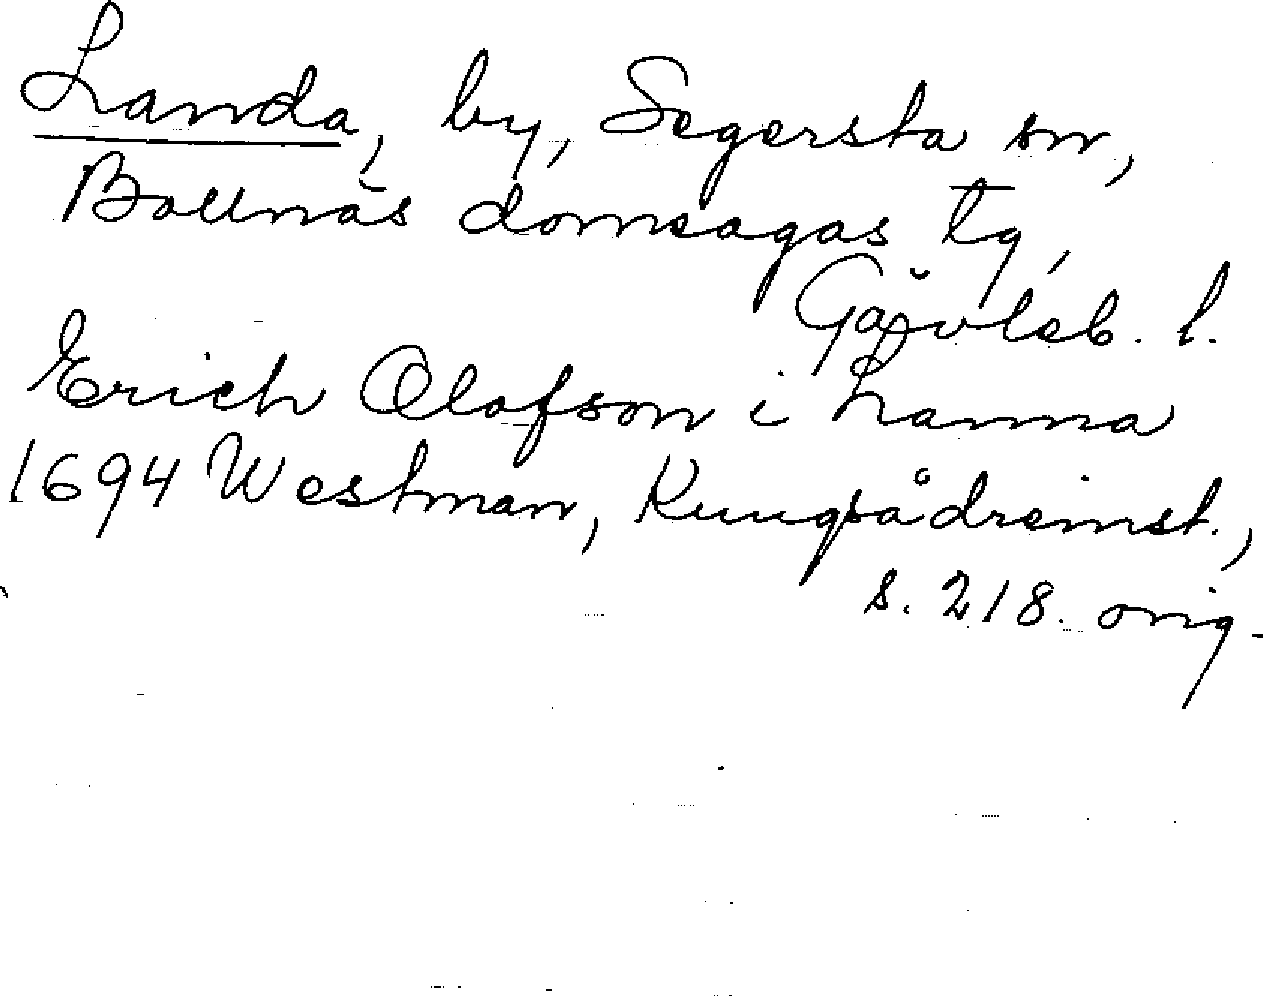 Landa, by, Segersta sn,
Bollnäs domsagas tg,
Gävleb. l.
Erich Olofson i Lanna
1694 Westman, Kungsådremst.,
s. 218. orig.